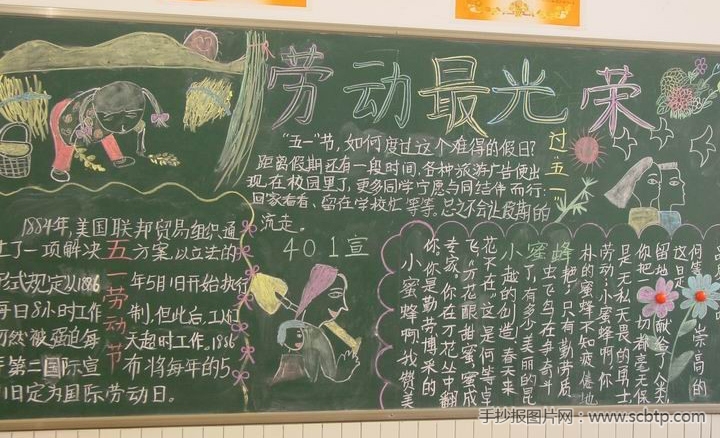 劳动最光荣
"五一"节，如何度过这个难得的假日？
距离假期还有一段时间，各种旅游广告便出
现在校园里了，更多同学宁愿与同结伴而行；
回家看看、留在学校忙等等。总之不会让假期的
流走。
过"五一"
1884年，美国联邦贸易组织通
了一项解决五方案，以立法的
形式规定从1886年5月1日开始执行
每日8小时工作制，但此后，工人们
仍然被强迫每天超时工作。1886
第二国际宣布将每年的5
1日定为国际劳动日。
五一劳动节
401宣
小蜜蜂
何等
崇高的
这日是
留给
献给了人类
你把一切都毫无保
是无私无畏的勇士
劳动，小蜜蜂啊，你
林的蜜蜂不知疲倦地
把，只有勤劳质
虫飞鸟在争奇斗
了，有多少美丽的昆
越的创造，春天来
花不在"这是何等卓
飞"万花眼甜蜜，蜜成
专家，你在万花丛中翻
你，你是勤劳博采的
小蜜蜂啊，我赞美
手抄报图片网：www.scbtp.com